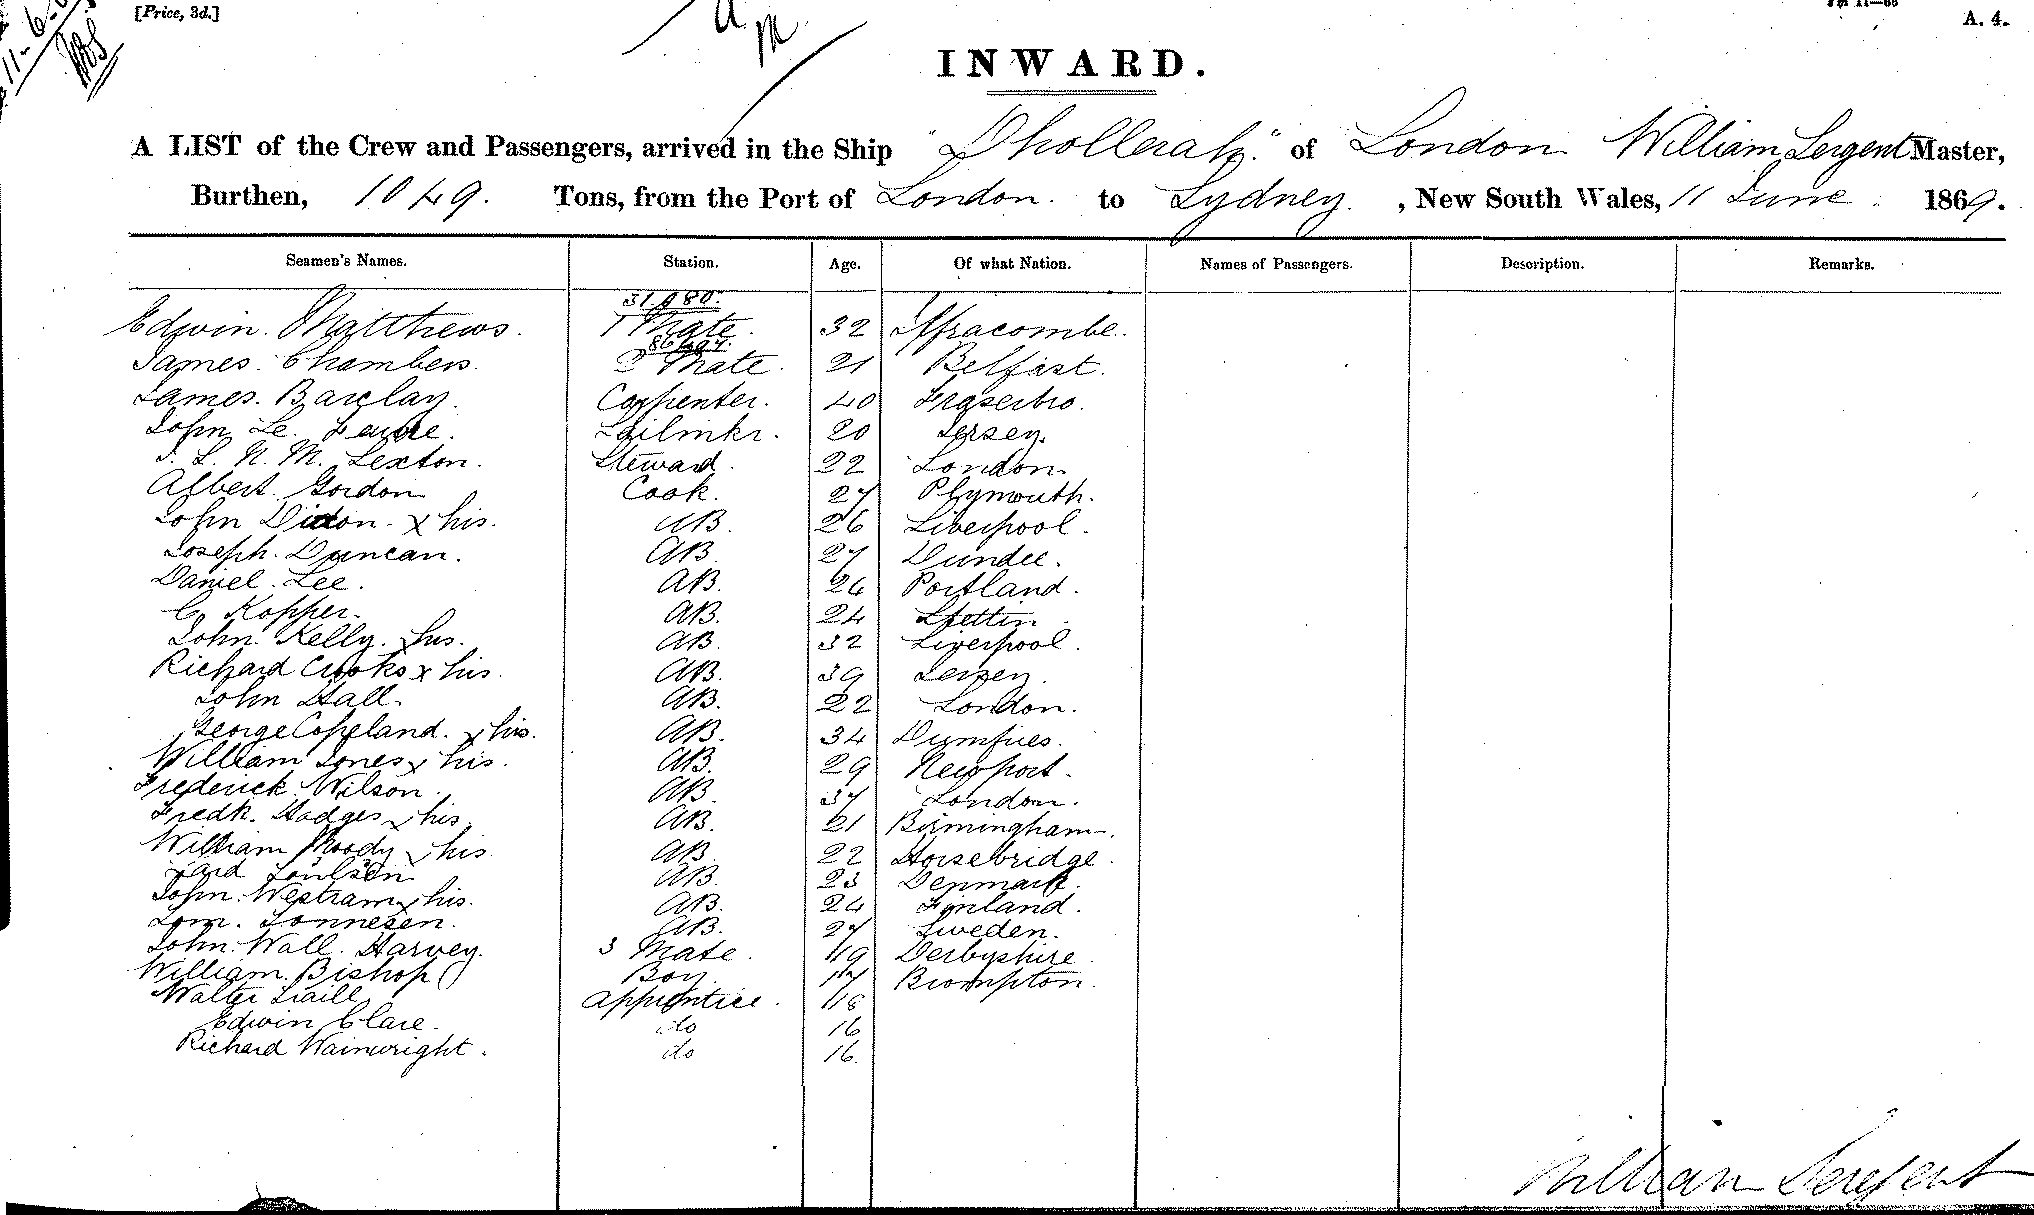 [Price, 3d.]
A. 4.
INWARD.
A LIST of the Crew and Passengers, arrived in the Ship "Dhollerah" of London William Sergent Master,
Burthen, 1049. Tons, from the Port of London. to Sydney. , New South Wales, 11 June 1869.
Seamen's Names. Station. Age. Of what Nation. Names of Passengers. Description. Remarks.
Edwin. Matthews. 1 Mate. 32 Ilfracombe.
James. Chambers. 2 Mate. 21 Belfast.
James. Barclay. Carpenter. 40 Fraserbro.
John Le. Sailmkr. 20 Jersey.
L. N. M. Sexton. Steward. 22 London.
Albert. Gordon Cook. 27 Plymouth.
John x his. AB. 26 Liverpool.
Joseph. Duncan. AB. 27 Dundee.
Daniel. Lee. AB. 26 Portland.
C. Kopper. AB. 24 Stettin
John. Kelly. x his. AB. 32 Liverpool.
Richard Crooks x his. AB. 39 Jersey.
John Hall. AB. 22 London.
George Copeland. x his. AB. 34 Dumfries.
William Jones x his. AB. 29 Newport.
Frederick. Wilson. AB. 37 London.
Fredk. Hodges x his. AB. 21 Birmingham.
William Moody x his AB. 22 Horsebridge.
AB. 23 Denmark.
John. Westram x his. AB. 24 Finland.
Sonnesen. AB. 27 Sweden.
John. Wall. Harvey. 3 Mate. 19 Derbyshire.
William. Bishop Boy. 17 Brompton.
Walter Apprentice. 18
Edwin Clare. do 16
Richard Wainwright. do 16.
William Sergent